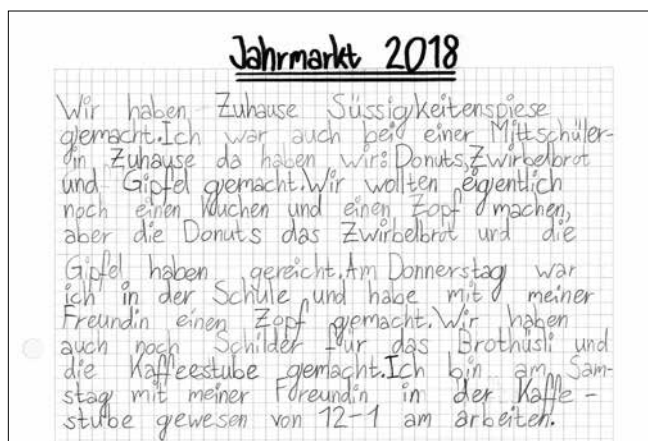 Jahrmarkt 2018
Wir haben Zuhause Süssigkeitenspiese
gemacht. Ich war auch bei einer Mittschüler-
in Zuhause da haben wir: Donuts, Zwirbelbrot
und Gipfel gemacht. Wir wollten eigentlich
noch einen Kuchen und einen Zopf machen,
aber die Donuts das Zwirbelbrot und die
Gipfel haben gereicht. Am Donnerstag war
ich in der Schule und habe mit meiner
Freundin einen Zopf gemacht. Wir haben
auch noch Schilder für das Brothüsli und
die Kaffeestube gemacht. Ich bin am Sam-
stag mit meiner Foreundin in der Kaffe-
stube gewesen von 12-1 am arbeiten.